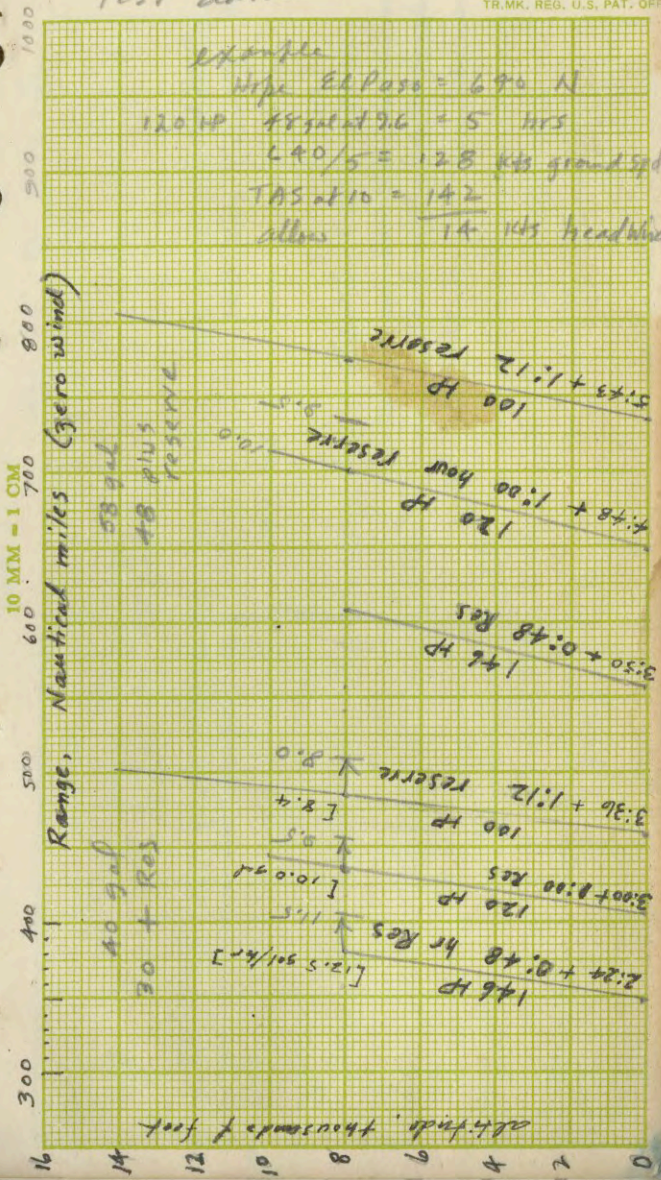 TR.MK. REG. U.S. PAT. OFF
example
Hope El Paso = 640 N
120 HP 48 gal at 9.6 = 5 hrs
640/5 = 128 kts ground spd
TAS at 10 = 142
allow 14 kts headwind
10 MM = 1 CM
Range, Nautical miles (zero wind)
300 400 500 600 700 800 900 1000
58 gal
48 plus
reserve
40 gal
30 + Res
5:43 + 1:12 reserve
100 HP
9.5
10.0
4:48 + 1:00 hour reserve
120 HP
3:50 + 0:48 Res
146 HP
8.0
[8.4
3:36 + 1:12 reserve
100 HP
9.5
[10.0 gal
3:00 + 1:00 Res
120 HP
11.5
[12.5 gal/hr]
2:24 + 0:48 hr Res
146 HP
altitude, thousands of feet
16 14 12 10 8 6 4 2 0